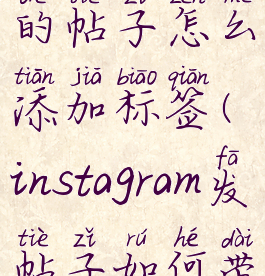 的帖子怎么
tiān jiā biāo qiān
添加标签(
fā
instagram发
tiè zǐ rú hé dài
帖子如何带